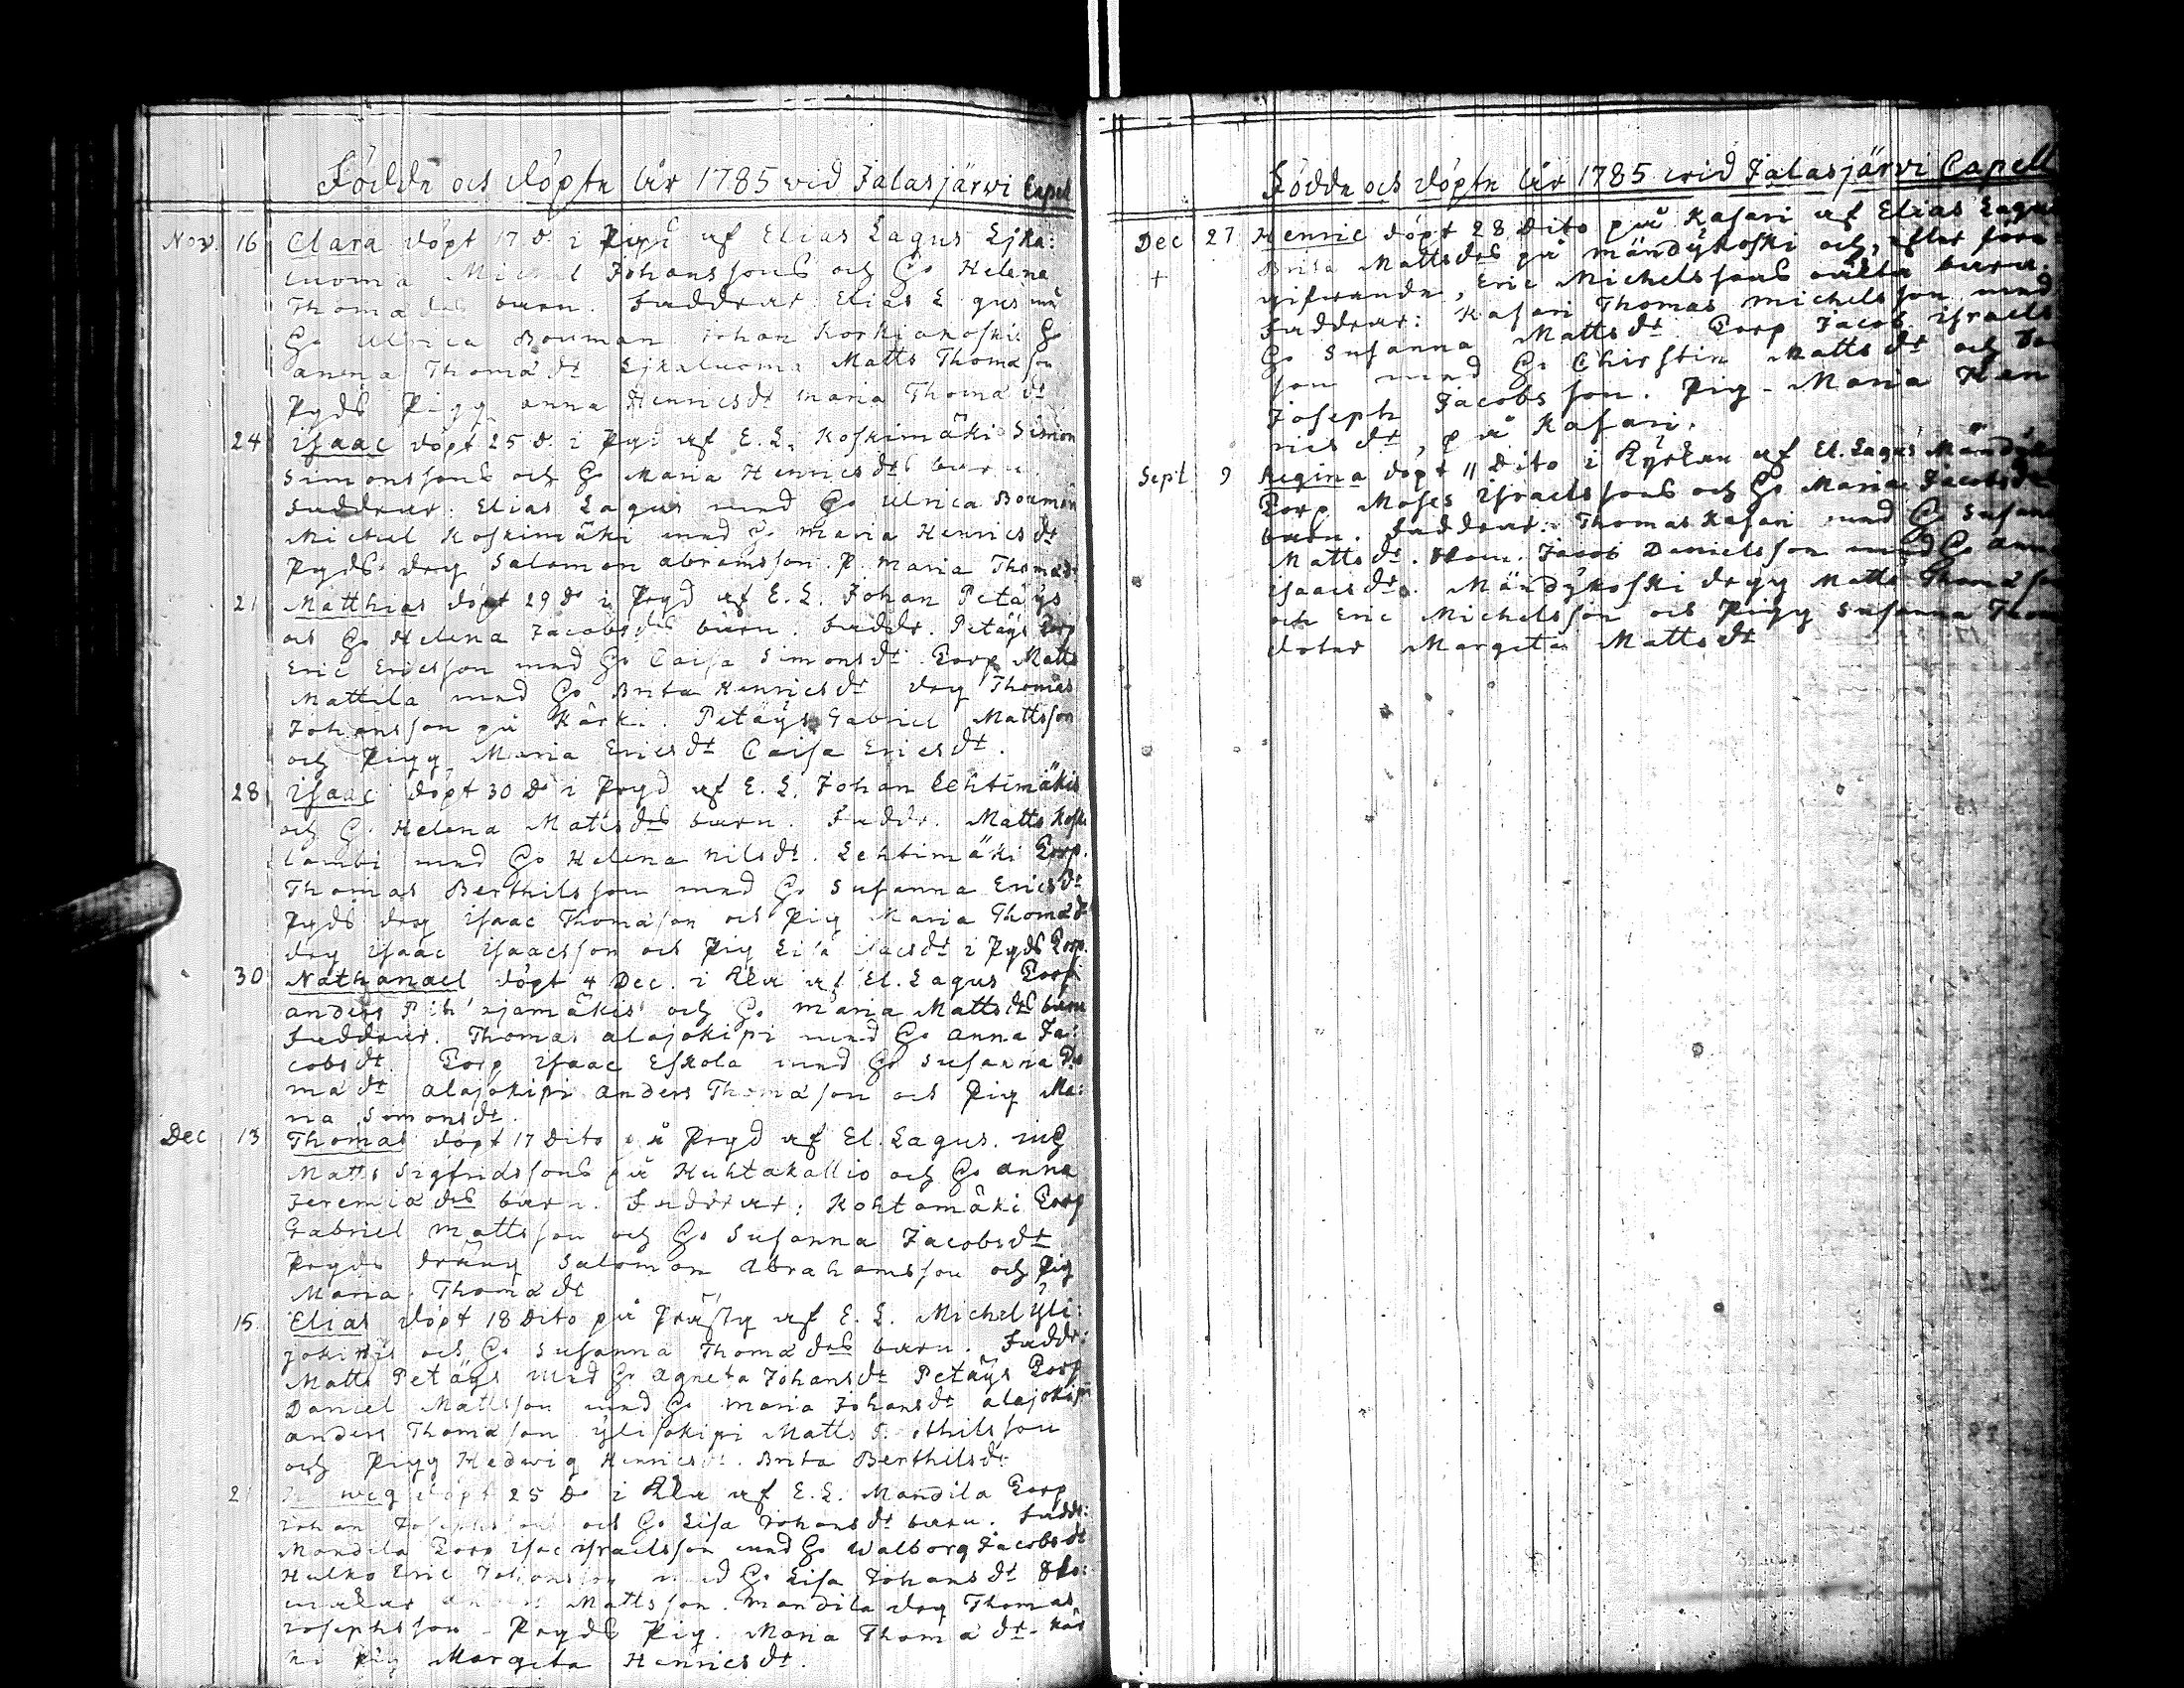 Födde och döpte År 1785 vid Jalasjärvi Capel
Nov. 16 Clara döpt 17 d. i Pgd af Elias Lagus Ejka:
luoma Michel Johanssons och H. Helena
Thomæ drs barn. Faddrar Elias Lagus m
H. Ulrica Bouman Johan Korkiakoskis H.
anna Thomæ dr Ejkaluoma Matts Thomæson
Pgds Pigg anna Henricsdr Maria Thomæ dr
24 Isaac döpt 25 d. i Pg: af E. L. Koskimäki Simon
Simonssons och H. Maria Henricsdrs barn.
Faddrar. Elias Lagus med H. Ulrica Bouman
Michel Koskimäki med H. Maria Henricsdr
Pgds drg Salomon abramsson. P. Maria Thomædr
21 Matthias döpt 29 d. i Prgd af E. L. Johan Petäys
och H. Helena Jacobs drs barn. Faddr. Petäys Torp
Eric Ericsson med H. Caisa Simonsdr. Torp Matts
Mattila med H. Brita Henricsdr drg Thomas
Johansson på Kärki. Petäys Gabriel Mattsson
och Pigg Maria Ericsdr Caisa Ericsdr.
28 Isaac döpt 30 d. i Prgd af E. L. Johan Lehtimäkis
och H. Helena Mattsdrs barn. Faddr. Matts Koski
lambi med H. Helena Nilsdr. Lehtimäki Torp.
Thomas Berthilsson med H. Susanna Ericsdr
Pgds drg Isaac Thomæson och Pig Maria Thomædr
drg Isaac Isaacsson och Pig Lisa Isacsdr i Pgds Torp.
30 Nathanael döpt 4 Dec. i Kka af El. Lagus Torp
anders Pihlajamäkis och H. Maria Mattsdrs barn
Faddrar. Thomas alajokipi med H. anna Ja:
cobsdr. Torp Isaac Eskola med H. Susanna Tho
mædr alajokipi anders Thomæson och Pig Ma:
ria Simonsdr.
Dec 13 Thomas döpt 17 Dito på Prgd af El. Lagus.
Matts Sigfridssons på Huhtakallio och H. anna
Jeremiæ drs barn. Faddrar: Kohtamäki Torp
Gabriel Mattsson och H. Susanna Jacobsdr
Prgds dräng Salomon Abrahamsson och Pig
Maria Thomædr
15. Elias döpt 18 Dito på Prästg af E. L. Michel Yli:
jokipis och H. Susanna Thomæ drs barn. Faddr:
Matts Petäys med H. Agneta Johansdr Petäys Torp
Daniel Mattsson med H. Maria Johansdr alajokipi
anders Thomæson Ylijokipi Matts Berthilsson
och Pigg Hedwig Henricsdr. Brita Berthilsdr
21 döpt 25 d. i Kka af E. L. Mandila Torp
Johan Josephssons och H. Lisa Johansdr barn. Faddr:
Mandila Torp Isac Israelsson med H. Walborg Jacobsdr
Hulko Eric Johansson med H. Lisa Johansdr Sko:
makar Anders Mattsson. Mandila drg Thomas
Josephsson - Prgds Pig. Maria Thomædr. Kär
ki Pig Margeta Henricsdr.
Födde och döpte År 1785 vid Jalasjärvi Capell
Dec 27 Henric döpt 28 Dito på Kasari af Elias Lagus
+ Brita Mattsdrs på Mändykoski och, efter före
gifvande, Eric Michelssons oäkta barn.
Faddrar: Kasari Thomas Michelsson med
H. Susanna Mattsdr Torp Jacob Israels
son med H. Chirstin Mattsdr och
Joseph Jacobsson. Pig - Maria Hen
ricsdr, på Kasari.
Sept 9 Regina döpt 11 Dito i Kyrkan af El. Lagus Mändyk
Torp Moses Israelssons och H. Maria Jacobsdrs
barn. Faddrar: Thomas Kasari med H. Susanna
Mattsdr. Skom. Jacob Danielsson med H. Anna
Isaacsdr. Mändykoski drgg Matts Thomæson
och Eric Michelsson och Pigg Susanna Thomæ
doter Margeta Mattsdr